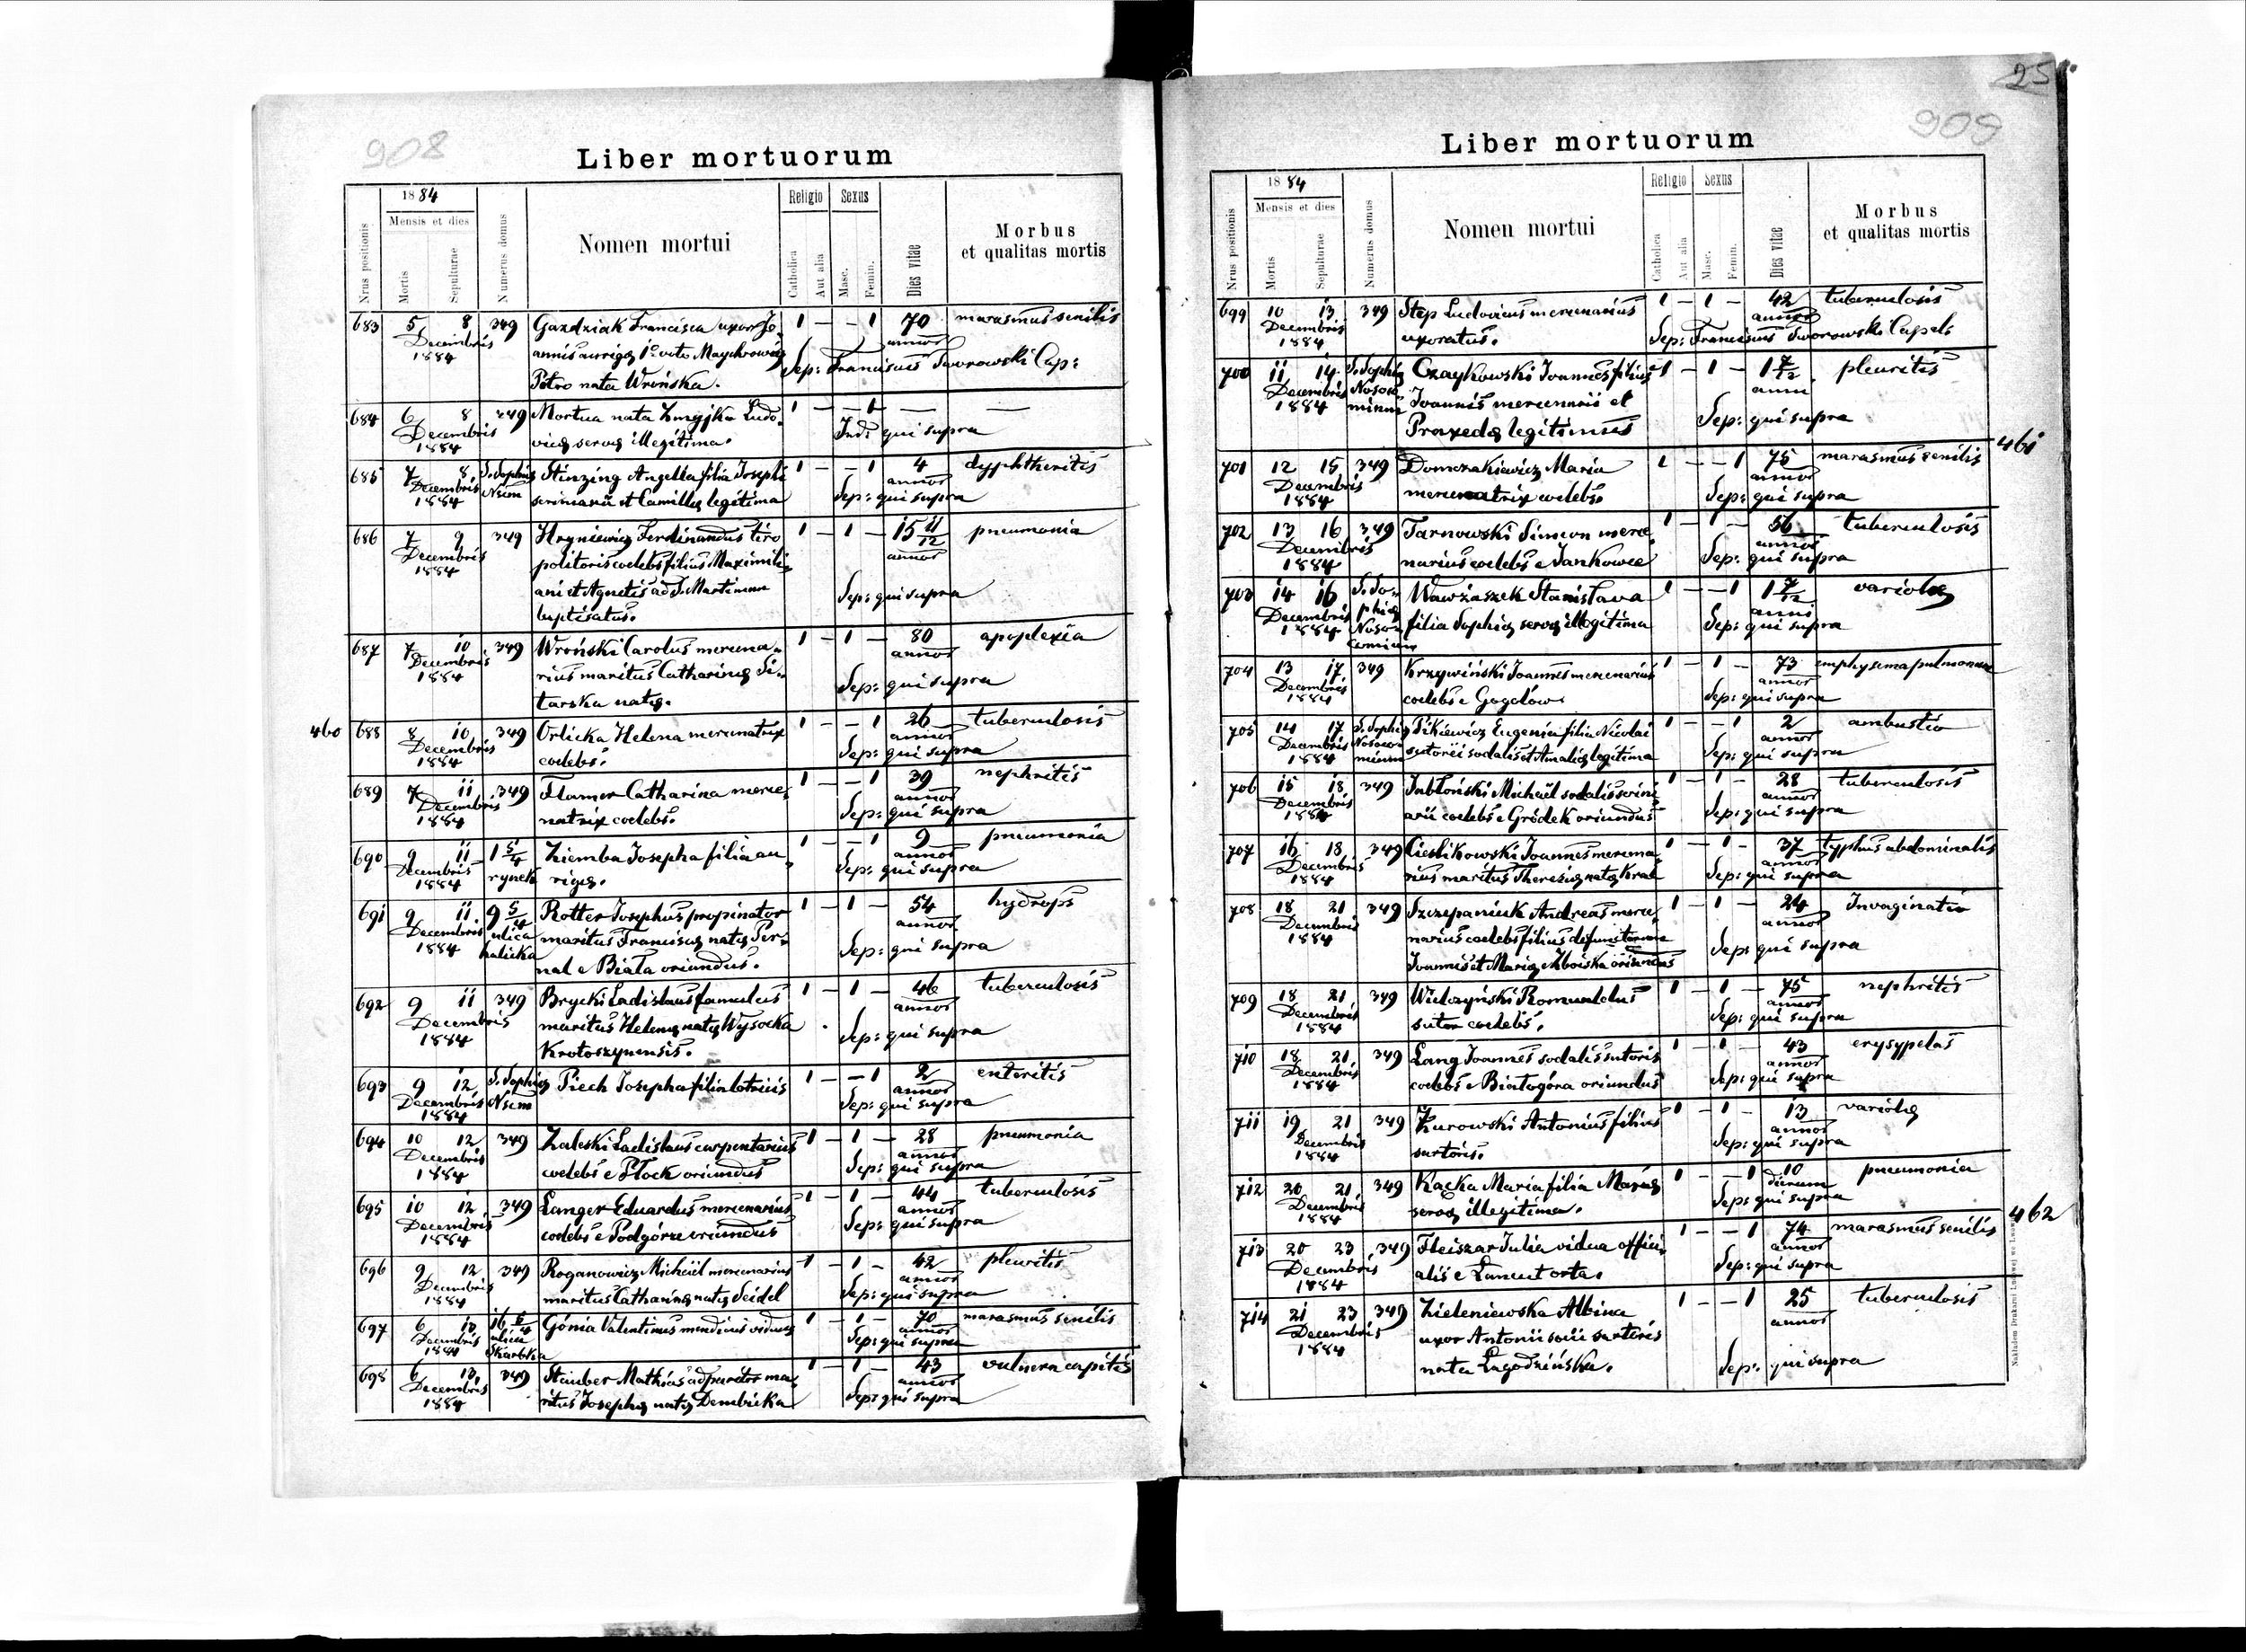 908
Liber mortuorum
Nrus positionis
1884
Mensis et dies
Mortis
Sepulturae
Numerus domus
Nomen mortui
Religio
Catholica
Aut alia
Sexus
Masc.
Femin.
Dies vitae
Morbus
et qualitas mortis
683 5 8 349 Gazdziak Francisca uxor Jo- 1 — — 1 70 marasmus senilis
Decembris annis aurigę 1º voto Maychrowicz annor
1884 Petro nata Wrońska. Sep: Franciscus Tworowski Cap:
684 6 8 349 Mortua nata Zmyjka Ludo- 1 — — 1 — —
Decembris vicę servę illegitima. Ind: qui supra
1884
685 7 8 S. Sophię Stinzing Angella filia Josephi 1 — — 1 4 dyphtheritis
Decembris Nsem scriniarii et Camillę legitima annor
1884 Sep: qui supra
686 7 9 349 Hryniewicz Ferdinandus tiro 1 — 1 — 15 11/12 pneumonia
Decembris politoris coelebs filius Maximili- annor
1884 ani et Agnetis ad S. Martinum
baptisatus. Sep: qui supra
687 7 10 349 Wroński Carolus mercena- 1 — 1 — 80 apoplexia
Decembris rius maritus Catharinę Si- annor
1884 tarska natę. Sep: qui supra
460 688 8 10 349 Orlicka Helena mercenatrix 1 — — 1 26 tuberculosis
Decembris coelebs. annor
1884 Sep: qui supra
689 7 11 349 Flamer Catharina merce- 1 — — 1 39 nephritis
Decembris natrix coelebs. annor
1884 Sep: qui supra
690 9 11 1 5/4 Ziemba Josepha filia au- 1 — — 1 9 pneumonia
Decembris rynek rigę. annor
1884 Sep: qui supra
691 9 11. 9 5/4 Rotter Josephus propinator 1 — 1 — 54 hydrops
Decembris ulica maritus Franciscę natę Per- annor
1884 halicka nal e Biała oriundus. Sep: qui supra
692 9 11 349 Brycki Ladislaus famulus 1 — 1 — 46 tuberculosis
Decembris maritus Helenę natę Wysocka annor
1884 Krotoszynensis. Sep: qui supra
693 9 12 S. Sophię Piech Josepha filia lotricis 1 — — 1 2 enteritis
Decembris Nsem annor
1884 Sep: qui supra
694 10 12 349 Zaleski Ladislaus carpentarius 1 — 1 — 28 pneumonia
Decembris coelebs e Płock oriundus annor
1884 Sep: qui supra
695 10 12 349 Langer Eduardus mercenarius 1 — 1 — 44 tuberculosis
Decembris coelebs e Podgórze oriundus annor
1884 Sep: qui supra
696 9 12 349 Roganowicz Michaël mercenarius 1 — 1 — 42 pleuritis
Decembris maritus Catharinę natę Seidel annor
1884 Sep: qui supra
697 6 13 16 6/4 Gónia Valentinus mendicus viduus 1 — 1 — 70 marasmus senilis
Decembris ulica annor
1884 Skarbka Sep: qui supra
698 6 13 349 Stauber Mathias adparitor ma- 1 — 1 — 43 vulnera capitis
Decembris ritus Josephę natę Dembicka annor
1884 Sep: qui supra
25
909
Liber mortuorum
Nrus positionis
1884
Mensis et dies
Mortis
Sepulturae
Numerus domus
Nomen mortui
Religio
Catholica
Aut alia
Sexus
Masc.
Femin.
Dies vitae
Morbus
et qualitas mortis
699 10 13 349 Step Ludovicus mercenarius 1 — 1 — 42 tuberculosis
Decembris uxoratus. annor
1884 Sep: Franciscus Tworowski Capel:
700 11 14 S. Sophię Czaykowski Joannes filius 1 — 1 — 1 7/12 pleuritis
Decembris Nosoco- Joannis mercenarii et anni
1884 mium Praxedę legitimus Sep: qui supra
461
701 12 15 349 Domczakiewicz Maria 1 — — 1 75 marasmus senilis
Decembris mercenatrix coelebs. annor
1884 Sep: qui supra
702 13 16 349 Tarnowski Simeon merce- 1 — 1 — 56 tuberculosis
Decembris narius coelebs e Jankowce annor
1884 Sep: qui supra
703 14 16 S. So- Wawrzaszek Stanislava 1 — — 1 1 7/12 variolę
Decembris phię filia Sophię servę illegitima anni
1884 Nosocomium Sep: qui supra
704 13 17 349 Krzywiński Joannes mercenarius 1 — 1 — 73 emphysema pulmonum
Decembris coelebs e Gogołów annor
1884 Sep: qui supra
705 14 17 S. Sophię Pikiewicz Eugenia filia Nicolai 1 — — 1 2 ambustio
Decembris Nosoco- sutorii sodalis et Amalię legitima annor
1884 mium Sep: qui supra
706 15 18 349 Jabłoński Michaël sodalis scrini- 1 — 1 — 28 tuberculosis
Decembris arii coelebs e Gródek oriundus annor
1884 Sep: qui supra
707 16 18 349 Cieslikowski Joannes mercena- 1 — 1 — 37 typhus abdominalis
Decembris rius maritus Theresię natę Kral annor
1884 Sep: qui supra
708 18 21 349 Szczepaniuk Andreas merce- 1 — 1 — 24 Invaginatio
Decembris narius coelebs filius defunctorum annor
1884 Joannis et Marię Mboiska oriundus Sep: qui supra
709 18 21 349 Wilczyński Romualdus 1 — 1 — 75 nephritis
Decembris sutor coelebs. annor
1884 Sep: qui supra
710 18 21 349 Lang Joannes sodalis sutoris 1 — 1 — 43 erysypelas
Decembris coelebs e Białogóra oriundus annor
1884 Sep: qui supra
711 19 21 349 Żurowski Antonius filius 1 — 1 — 13 variolę
Decembris sartoris. annor
1884 Sep: qui supra
712 20 21 349 Kacka Maria filia Marię 1 — — 1 10 pneumonia
Decembris servę illegitima. dierum
1884 Sep: qui supra
462
713 20 23 349 Fleiszar Julia vidua offici- 1 — — 1 74 marasmus senilis
Decembris alis e Łancut orta. annor
1884 Sep: qui supra
714 21 23 349 Zieleniewska Albina 1 — — 1 25 tuberculosis
Decembris uxor Antonii socii sartoris annor
1884 nata Łagodzińska. Sep: qui supra
Nakładem Drukarni Ludowej we Lwowie